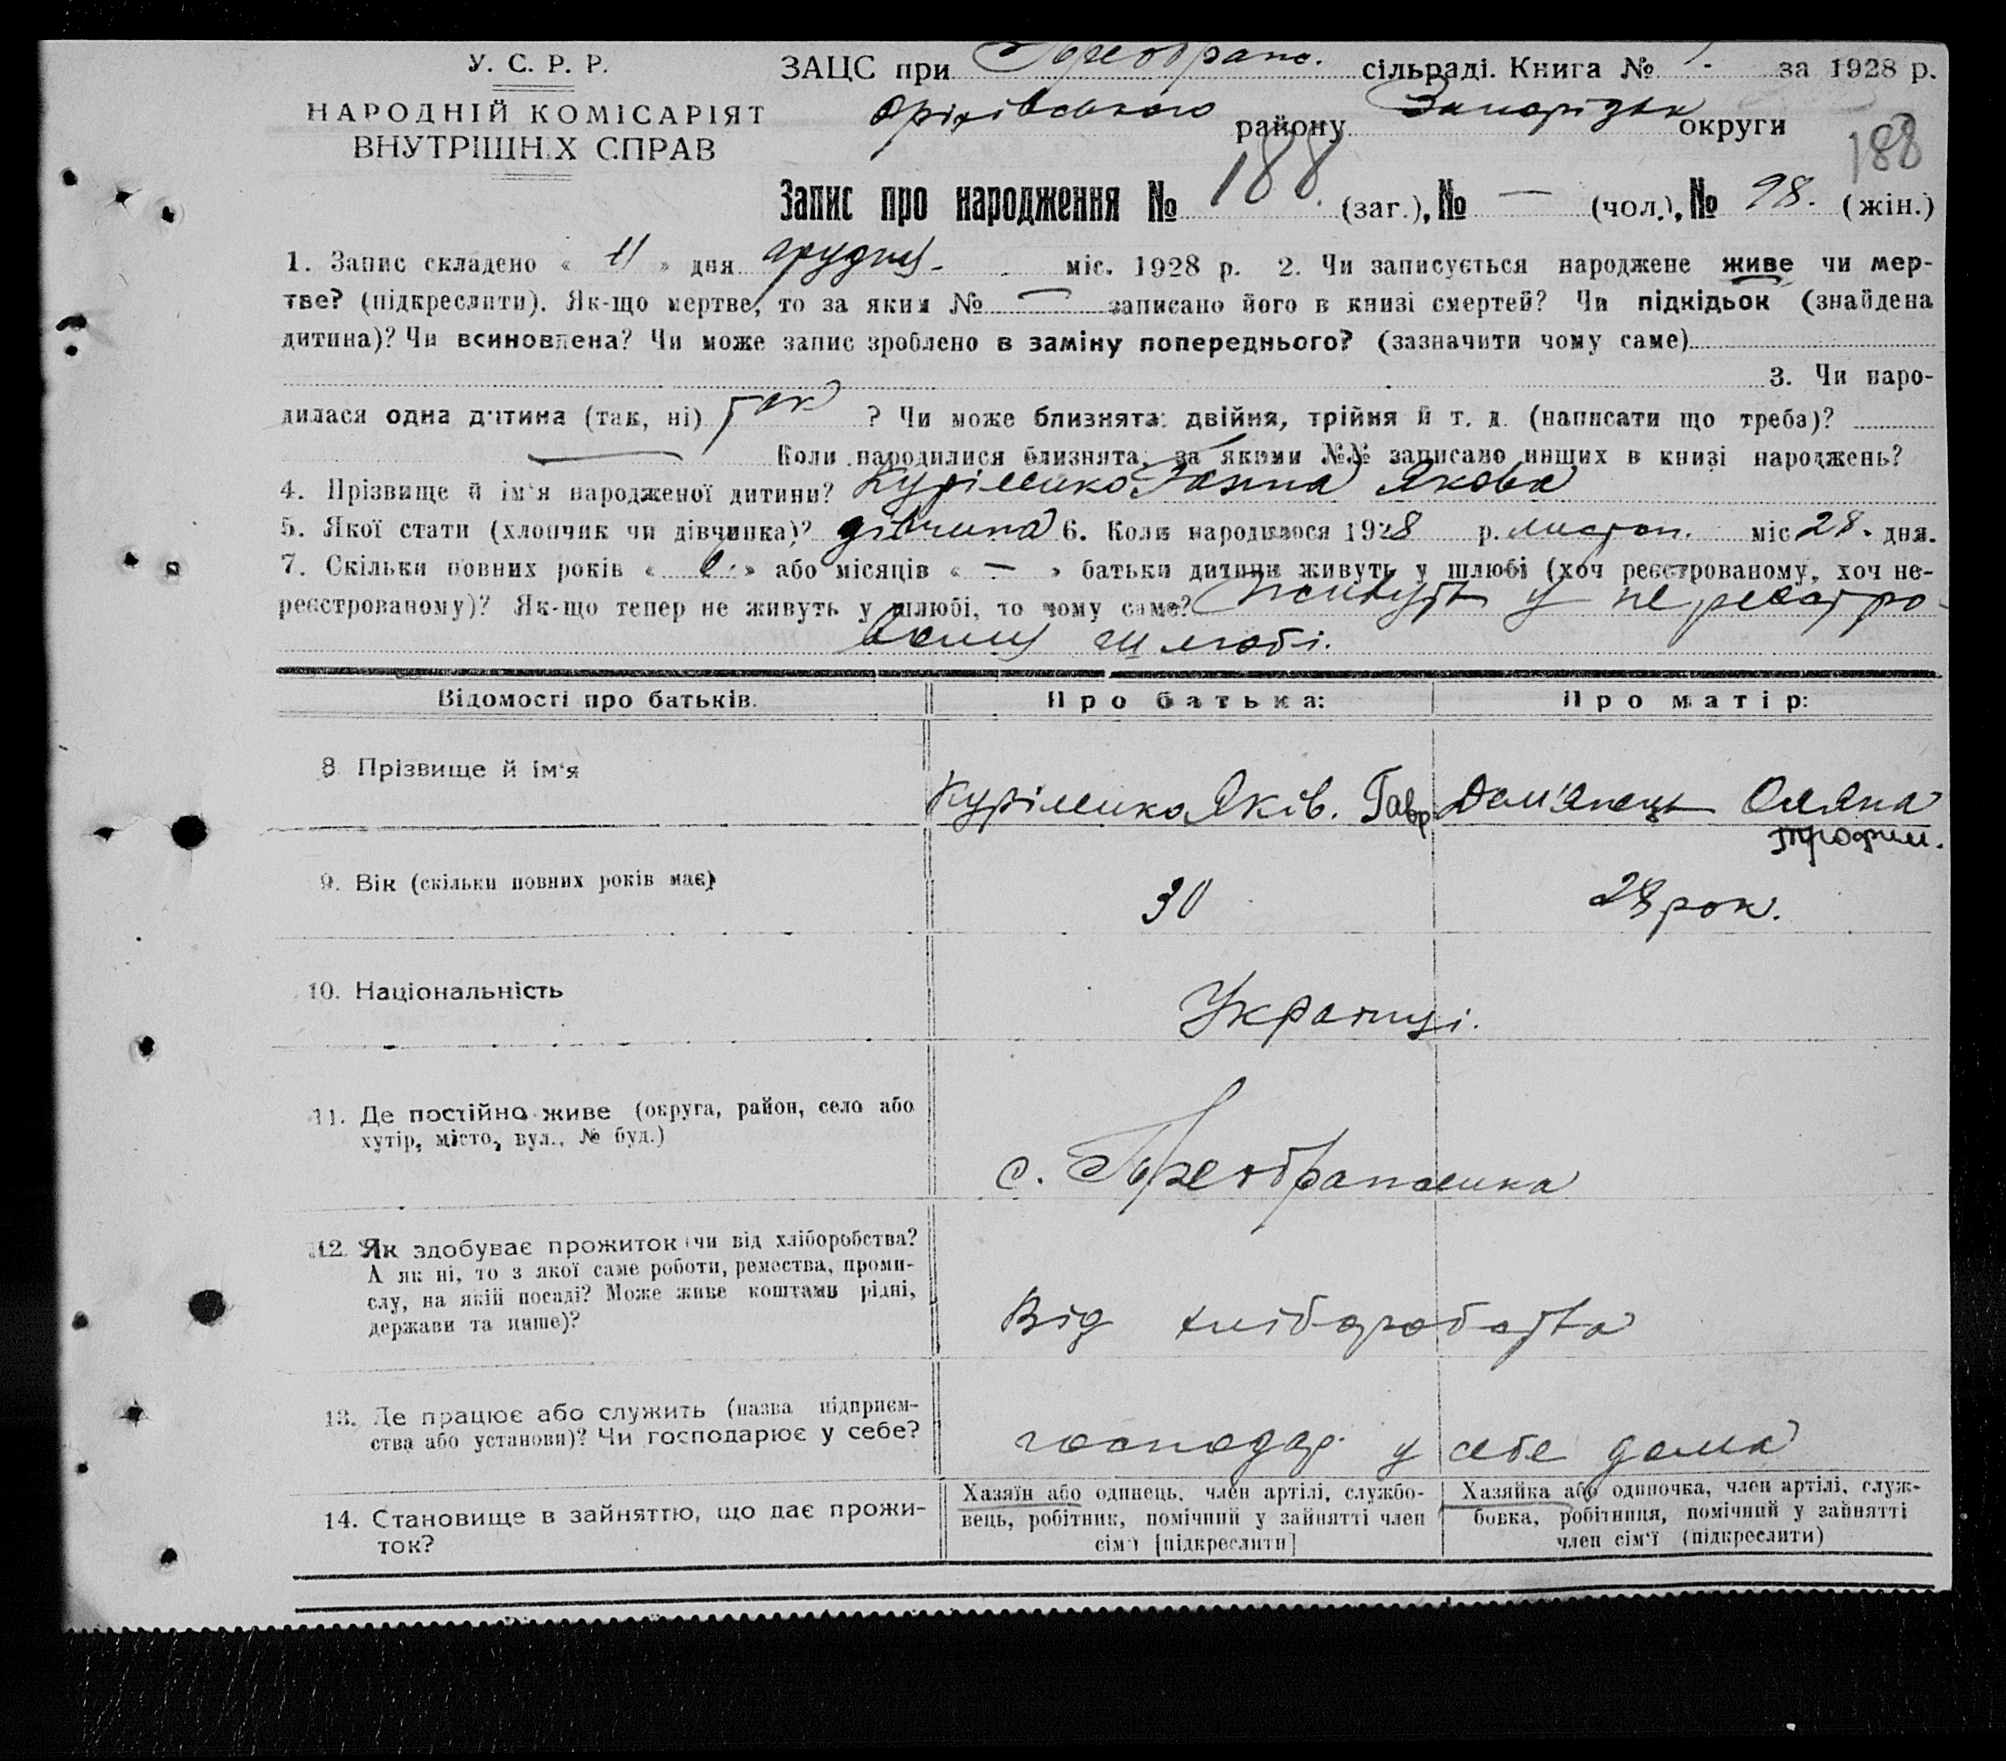 У. С. Р. Р.
НАРОДНІЙ КОМІСАРІЯТ
ВНУТРІШНІХ СПРАВ
ЗАЦС при Преображ. сільраді. Книга № за 1928 р.
Оріхівського району Запорізьк округи
188
Запис про народження № 188. (заг.), № — (чол.), № 98. (жін.)
1. Запис складено « 11 » дня грудня. міс. 1928 р. 2. Чи записується народжене живе чи мер-
тве? (підкреслити). Як-що мертве, то за яким № — записано його в книзі смертей? Чи підкідьок (знайдена
дитина)? Чи всиновлена? Чи може запис зроблено в заміну попереднього? (зазначити чому саме)
3. Чи наро-
дилася одна дитина (так, ні) так ? Чи може близнята: двійня, трійня й т. д. (написати що треба)?
— Коли народилися близнята, за якими №№ записано инших в книзі народжень?
4. Прізвище й ім'я народженої дитини? Куріленко Ганна Якова
5. Якої стати (хлопчик чи дівчинка)? дівчина 6. Коли народилося 1928 р. листоп. міс 28. дня.
7. Скільки повних років « » або місяців « — » батьки дитини живуть у шлюбі (хоч реєстрованому, хоч не-
реєстрованому)? Як-що тепер не живуть у шлюбі, то чому саме? Живуть у не реєстро-
шлюбі.
Відомості про батьків. Про батька: Про матір:
8. Прізвище й ім'я Куріленко Яків. Гавр Дем'янець Оляна
Трофим.
9. Вік (скільки повних років має) 30 28 рок.
10. Національність Українці.
11. Де постійно живе (округа, район, село або
хутір, місто, вул., № буд.)
с. Преображенка
12. Як здобуває прожиток чи від хліборобства?
А як ні, то з якої саме роботи, ремества, проми-
слу, на якій посаді? Може живе коштами рідні,
держави та инше)?
Від хліборобства
13. Де працює або служить (назва підприєм-
ства або установи)? Чи господарює у себе?
господар. у себе дома
14. Становище в зайняттю, що дає прожи-
ток?
Хазяїн або одинець, член артілі, службо-
вець, робітник, помічний у зайнятті член
сім'ї [підкреслити]
Хазяйка або одиночка, член артілі, служ-
бовка, робітниця, помічний у зайнятті
член сім'ї (підкреслити)